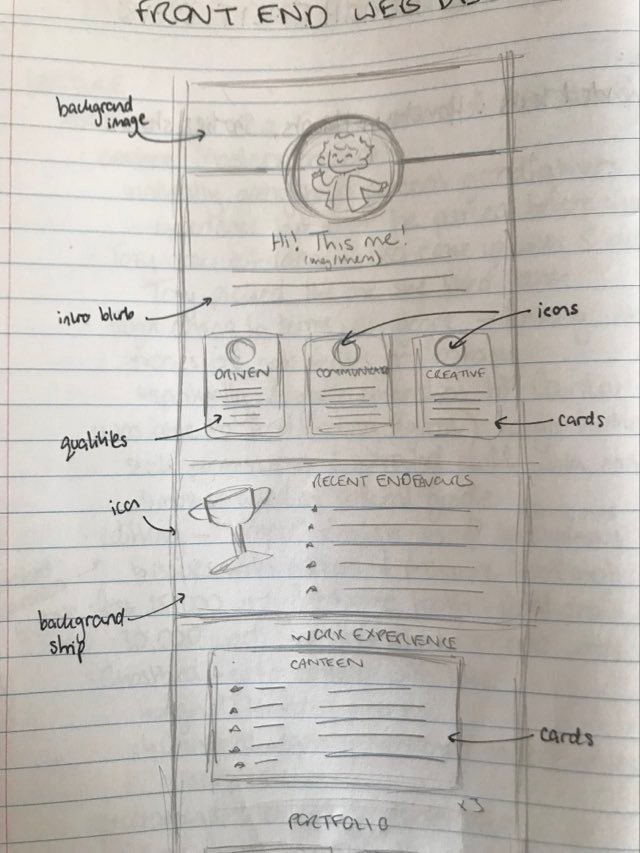 FRONT END WEB
background
image
Hi! This me!
intro blurb
icons
DRIVEN
COMMUNICATOR
CREATIVE
cards
qualities
RECENT ENDEAVOURS
icon
background
strip
WORK EXPERIENCE
CANTEEN
cards
x3
PORTFOLIO